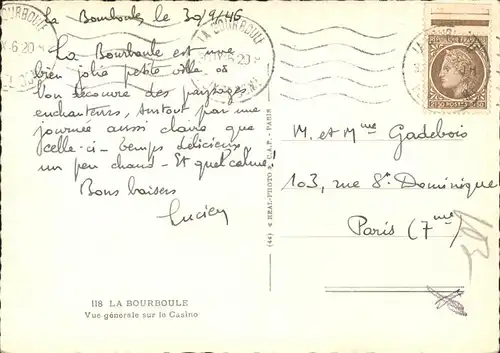 La Bourboule, le 30/9/46
La Bourboule est une
bien jolie petite ville où
l'on découvre des paysages
enchanteurs, surtout par une
journée aussi claire que
celle-ci - temps délicieux
un peu chaud - Et quel calme
Bons baisers
Lucien
118 LA BOURBOULE
Vue générale sur le Casino
(44) REAL-PHOTO C.A.P. - PARIS
LA BOURBOULE
LA BOURBOULE
M. et Mme Gadebois
103, rue St Dominique
Paris (7me)
103